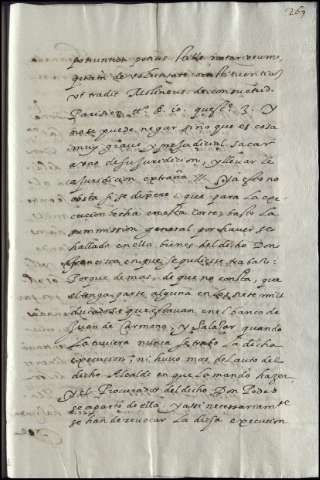 269
et tradit Molineus de consuetud.
Parisien tt.º 6. io. quest.º 3. Y
no se puede negar sino que es cosa
muy graue y perjudicial sacar
a reo de su juridicion, y lleuar le
a juridicion extraña // Y a esto no
obsta si se dixere que para la exe
cucion hecha en esta corte, basto la
summission general, por hauer se
hallado en ella bienes del dicho Don
francisco, en que se pudiesse trabar:
Porque demas, de que no consta, que
el tenga parte alguna en los siete mill
ducados que estauan, en el banco de
Juan de Carmona, y Salazar quando
la tuuiera nunca se trabo la dicha
execucion, ni huuo mas del auto del
dicho Alcalde en que la mando hazer,
Y el Procurador del dicho Don Pedro
se aparto de ella y assi necessariamte
se han de reuocar la dicha execucion